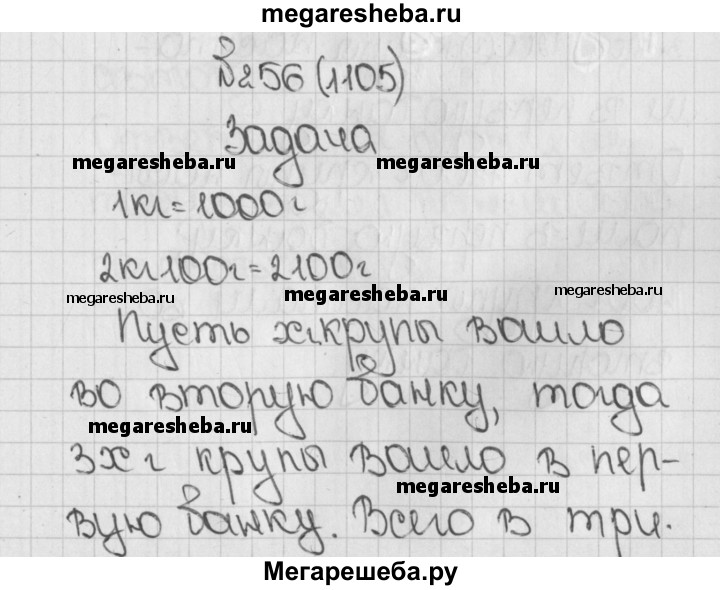 megaresheba.ru
№256 (1105)
Задача
megaresheba.ru megaresheba.ru
1кг=1000г
2кг100г=2100г
megaresheba.ru megaresheba.ru megaresheba.ru
Пусть хг крупы вошло
megaresheba.ru
во вторую банку, тогда
megaresheba.ru
3х г крупы вошло в пер-
megaresheba.ru
вую банку. Всего в три.
Мегарешеба.ру